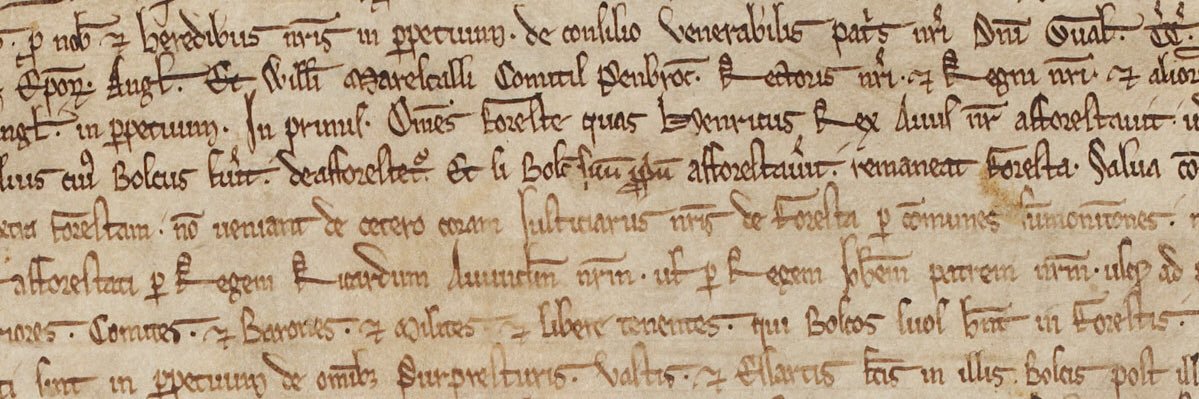 p nob ⁊ heredibus nr̄is in ppetuum. de consilio venerabilis pat's nr̄i Dn̄i Gual.
Ep̄on. Angl. Et Will̄i Marescalli Comitis Penbroc. Rectoris nr̄i. ⁊ Regni nr̄i. ⁊ alior
ngl. in ppetuum. In primis. Om̄es foreste quas Henricus Rex Auus nr̄ afforestauit. u
lius cui' Boscus fu'it. deafforestet'. Et si Bosc' suū ip̄ū afforestau'it. remaneat foresta. Salua cō
etra forestam. nō ueniant de cetero coram Iusticiariis nr̄is de foresta p cōmunes sūmonitiones.
afforestati p Regem Ricardum Auunclm̄ nr̄m. ul' p Regem Joh̄em patrem nr̄m. usq; ad
riores. Comites. ⁊ Barones. ⁊ Milites ⁊ libere tenentes. qui Boscos suos hn̄t in forestis.
ti sint in ppetuum de omīb; Purpresturis. Vastis. ⁊ Essartis fc̄is in illis Boscis post ill